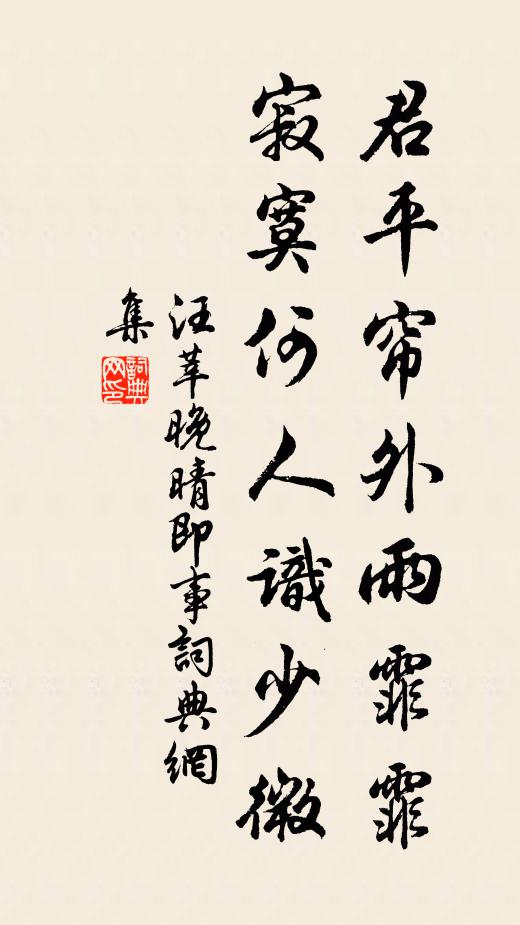 君平帘外雨霏霏
寂寞何人識少微
汪莘晚晴即事詞典網
集
詞典
网印